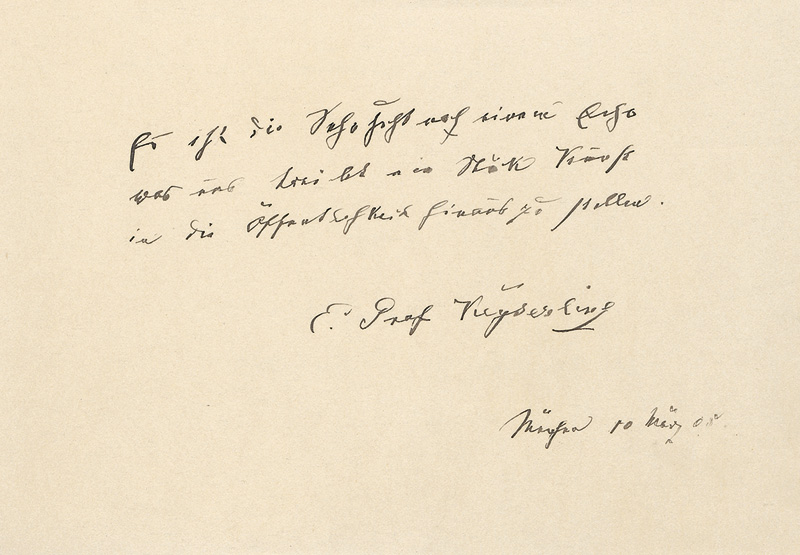 Es ist die Sehnsucht nach einem Echo
was uns treibt ein Stük Kunst
in die Öffentlichkeit hinaus zu stellen.
E. Graf Keyserling
München 10 März 05.